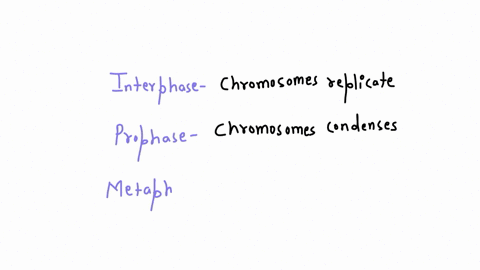 Interphase- Chromosomes replicate
Prophase- Chromosomes condenses
Metaph